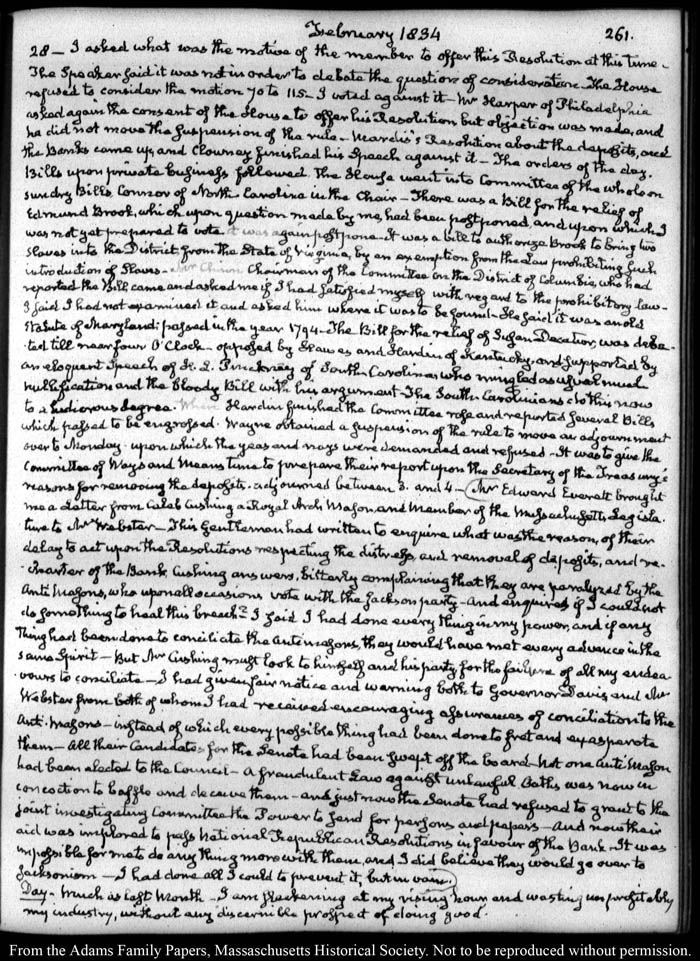 February 1834 261.
28 – I asked what was the motive of the member to offer this Resolution at this time –
The Speaker said it was not in order to debate the question of consideration – The House
refused to consider the motion 70 to 115 – I voted against it – Mr Harper of Philadelphia
asked again the consent of the House to offer his Resolution but objection was made, and
he did not move the suspension of the rule – Mardis's Resolution about the deposits, and
the Banks came up, and Clowney finished his Speech against it – The orders of the day.
Bills upon private business followed. The House went into Committee of the whole on
sundry Bills Connor of North Carolina in the Chair – There was a Bill for the relief of
Edmund Brook, which upon question made by me, had been postponed, and upon which I
was not yet prepared to vote it was again postpone – It was a bill to authorize Brook to bring two
Slaves into the District from the State of Virginia, by an exemption from the Law prohibiting such
introduction of Slaves – Mr Chinn Chairman of the Committee on the District of Columbia, who had
reported the Bill came and asked me if I had satisfied myself with regard to the prohibitory law –
I said I had not examined it and asked him where it was to be found – He said it was an old
Statute of Maryland: passed in the year 1794 – The Bill for the relief of Susan Decatur, was deba-
ted till near four O'Clock – opposed by Hawes and Hardin of Kentucky, and supported by
an eloquent Speech of H. L. Pinckney of South Carolina, who mingled as usual much
nullification and the Bloody Bill with his argument – The South Carolinians do this now
to a ludicrous degree. When Hardin finished the Committee rose and reported several Bills
which passed to be engrossed. Wayne obtained a suspension of the rule to move an adjournment
over to Monday – upon which the yeas and nays were demanded and refused – It was to give the
Committee of Ways and Means time to prepare their report upon the Secretary of the Treasury's
reasons for removing the deposits – adjourned between 3. and 4 – Mr Edward Everett brought
me a Letter from Caleb Cushing a Royal Arch Mason, and Member of the Massachusetts Legisla-
ture to Mr Webster – This Gentleman had written to enquire what was the reason, of their
delay to act upon the Resolutions respecting the distress, and removal of deposits, and re-
-charter of the Bank, Cushing answers, bitterly complaining that they are paralyzed by the
Anti Masons, who upon all occasions vote with the Jackson party – and enquires if I could not
do something to heal this breach? I said I had done every thing in my power, and if any
Thing had been done to conciliate the Antimasons, they would have met every advance in the
same Spirit – But Mr Cushing must look to himself and his party, for the failure of all my endea-
-vours to conciliate – I had given fair notice and warning both to Governor Davis and Mr
Webster from both of whom I had received encouraging assurances of conciliation to the
Anti-Masons – instead of which every possible thing had been done to fret and exasperate
them – All their Candidates for the Senate had been swept off the board – not one Anti Mason
had been elected to the Council – A fraudulent Law against unlawful Oaths was now in
concoction to baffle and deceive them – and just now the Senate had refused to grant to the
joint investigating Committee the Power to send for persons and papers – And now their
aid was implored to pass National Republican Resolutions in favour of the Bank – It was
impossible for me to do any thing more with them, and I did believe they would go over to
Jacksonism – I had done all I could to prevent it, but in vain.
Day – Much as last Month – I am slackening at my rising hour and wasting unprofitably
my industry, without any discernible prospect of doing good.
From the Adams Family Papers, Massachusetts Historical Society. Not to be reproduced without permission.